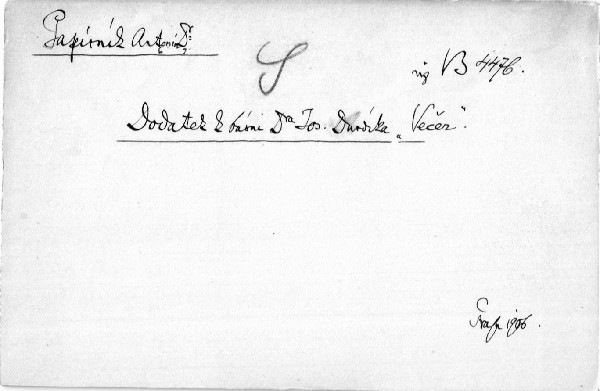 Papírník Antonín, Dr.
S
viz VB 4476.
Dodatek k básni Dra Jos. Durdíka „Večer“.
Praha 1906.